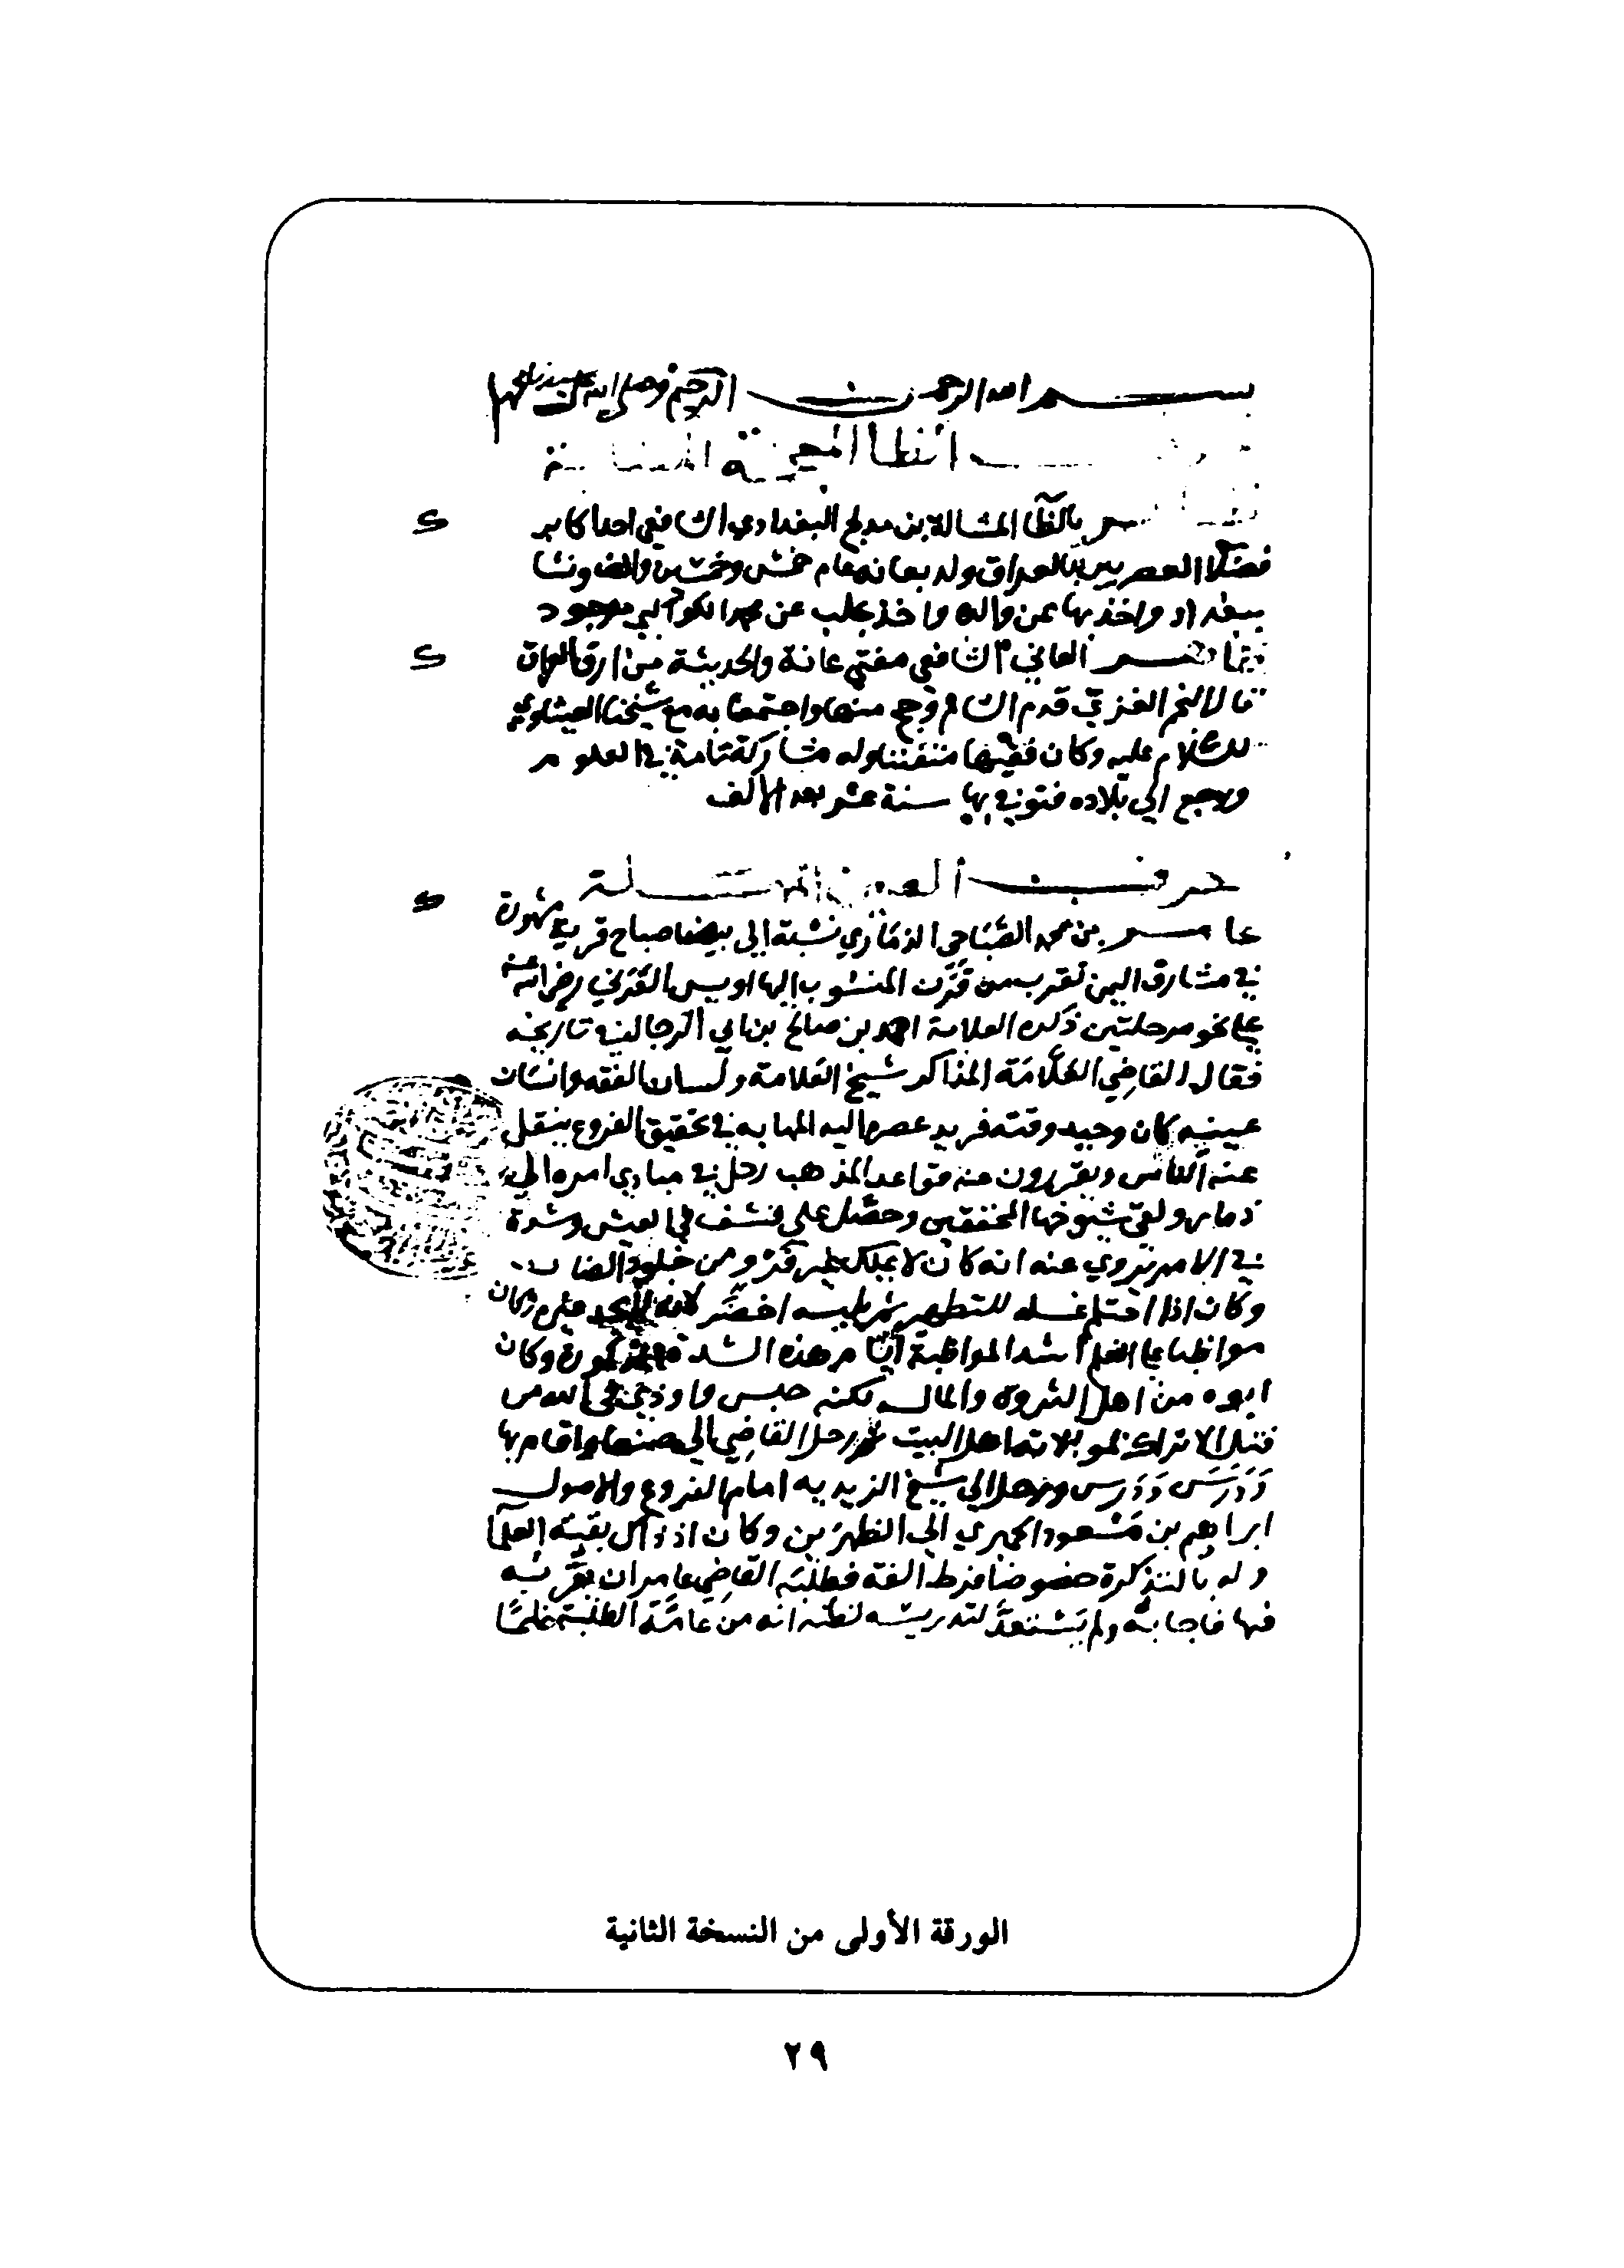 بسم الله الرحمن الرحيم وصلى الله على
حرف الظا المعجمة
بالظا المشالة ابن مدلج البغدادي الشافعي احد اكابر
فضلا العصر بالعراق ولد بعانه عام خمس وخمسين والف ونشا
ببغداد واخذ بها عن والده واخذ بحلب عن محمد الكواكبي موجود
العاني الشافعي مفتي عانة والحديثة من ارق العراق
قال النجم الغزي قدم الشام وحج منها واجتمعا به مع شيخنا العيثاوي
للسلام عليه وكان فقيها متفننا وله مشاركة تامة في العلوم
ورجع الى بلاده فتوفي بها سنة عشر بعد الالف
حرف العين المهملة
عامر بن محمد الصباحي الذماري نسبة الى صباح قرية مشهورة
في مشارق اليمن تقرب من قرن المنسوب اليها اويس القرني رضي الله عنه
على نحو مرحلتين ذكره العلامة احمد بن صالح بن ابي الرجال في تاريخه
فقال القاضي العلامة المذاكر شيخ العلامة ولسان الفقه وانسان
عينيه كان وحيد وقته فريد عصره اليه النهايه في تحقيق الفروع ينقل
عنه الناس ويقررون عنه قواعد المذهب رحل في مبادي امره الى
ذمار ولقي شيوخها المحققين وحصل على قشف في العيش وشدة
في الامر يروي عنه انه كان لا يملك غير فرو من جلود الضان
وكان اذا احتلم غسله للتطهر ثم يلبسه اخضر لانه لا يجد غيره وكان
مواظبا على العلم اشد المواظبة ايام هذه الشدة المذكورة وكان
ابوه من اهل الثروة والمال لكنه حبس واوذي في الله من
قبل الاتراك لموالاته اهل البيت ثم رحل القاضي الى صنعا واقام بها
ودرس ودرس ورحل الى شيخ الزيديه امام الفروع والاصول
ابراهيم بن مسعود الحميري الى الظهرين وكان اذ ذاك بقية العلما
وله بالتذكرة خصوصا فرط الفة فطلبه القاضي عامر ان يقرئه
فيها فاجابه ولم يستعد لتدريسه لظنه انه من عامة الطلبة فلما
الورقة الأولى من النسخة الثانية
٢٩